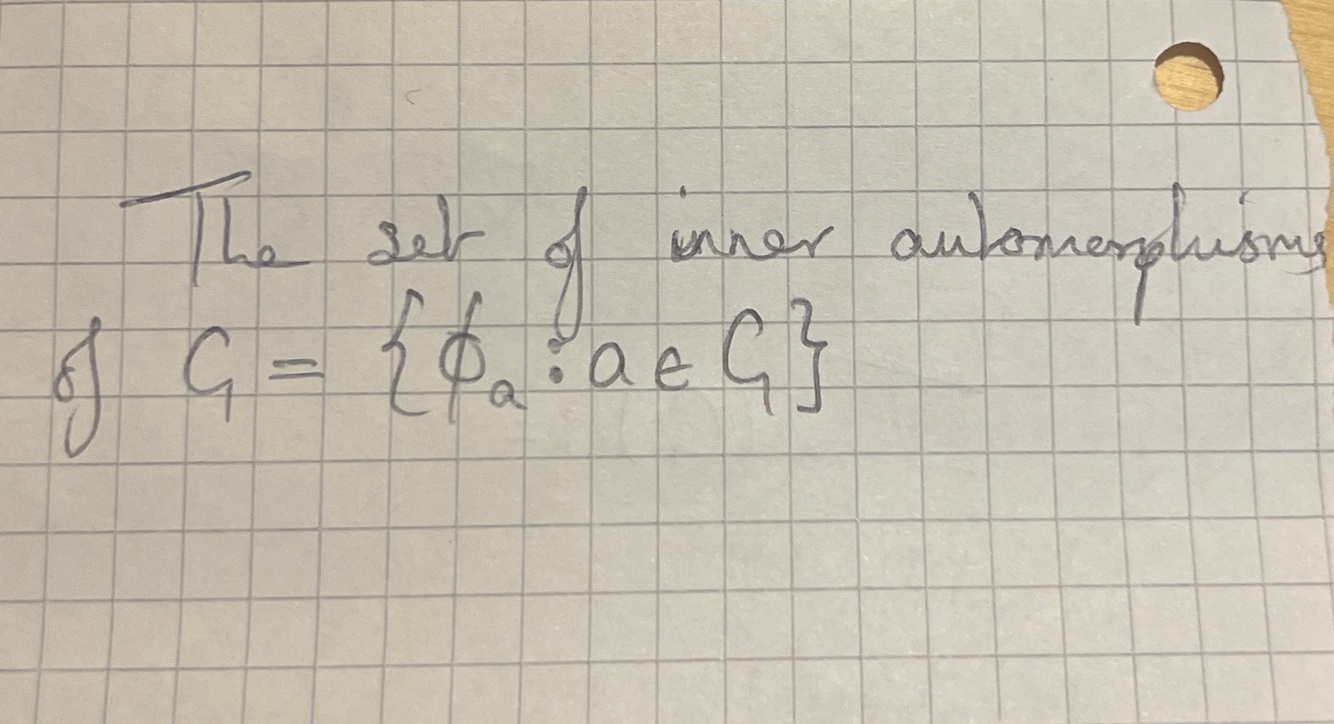 The set of inner automorphisms
of G = {ϕₐ : a ∈ G}